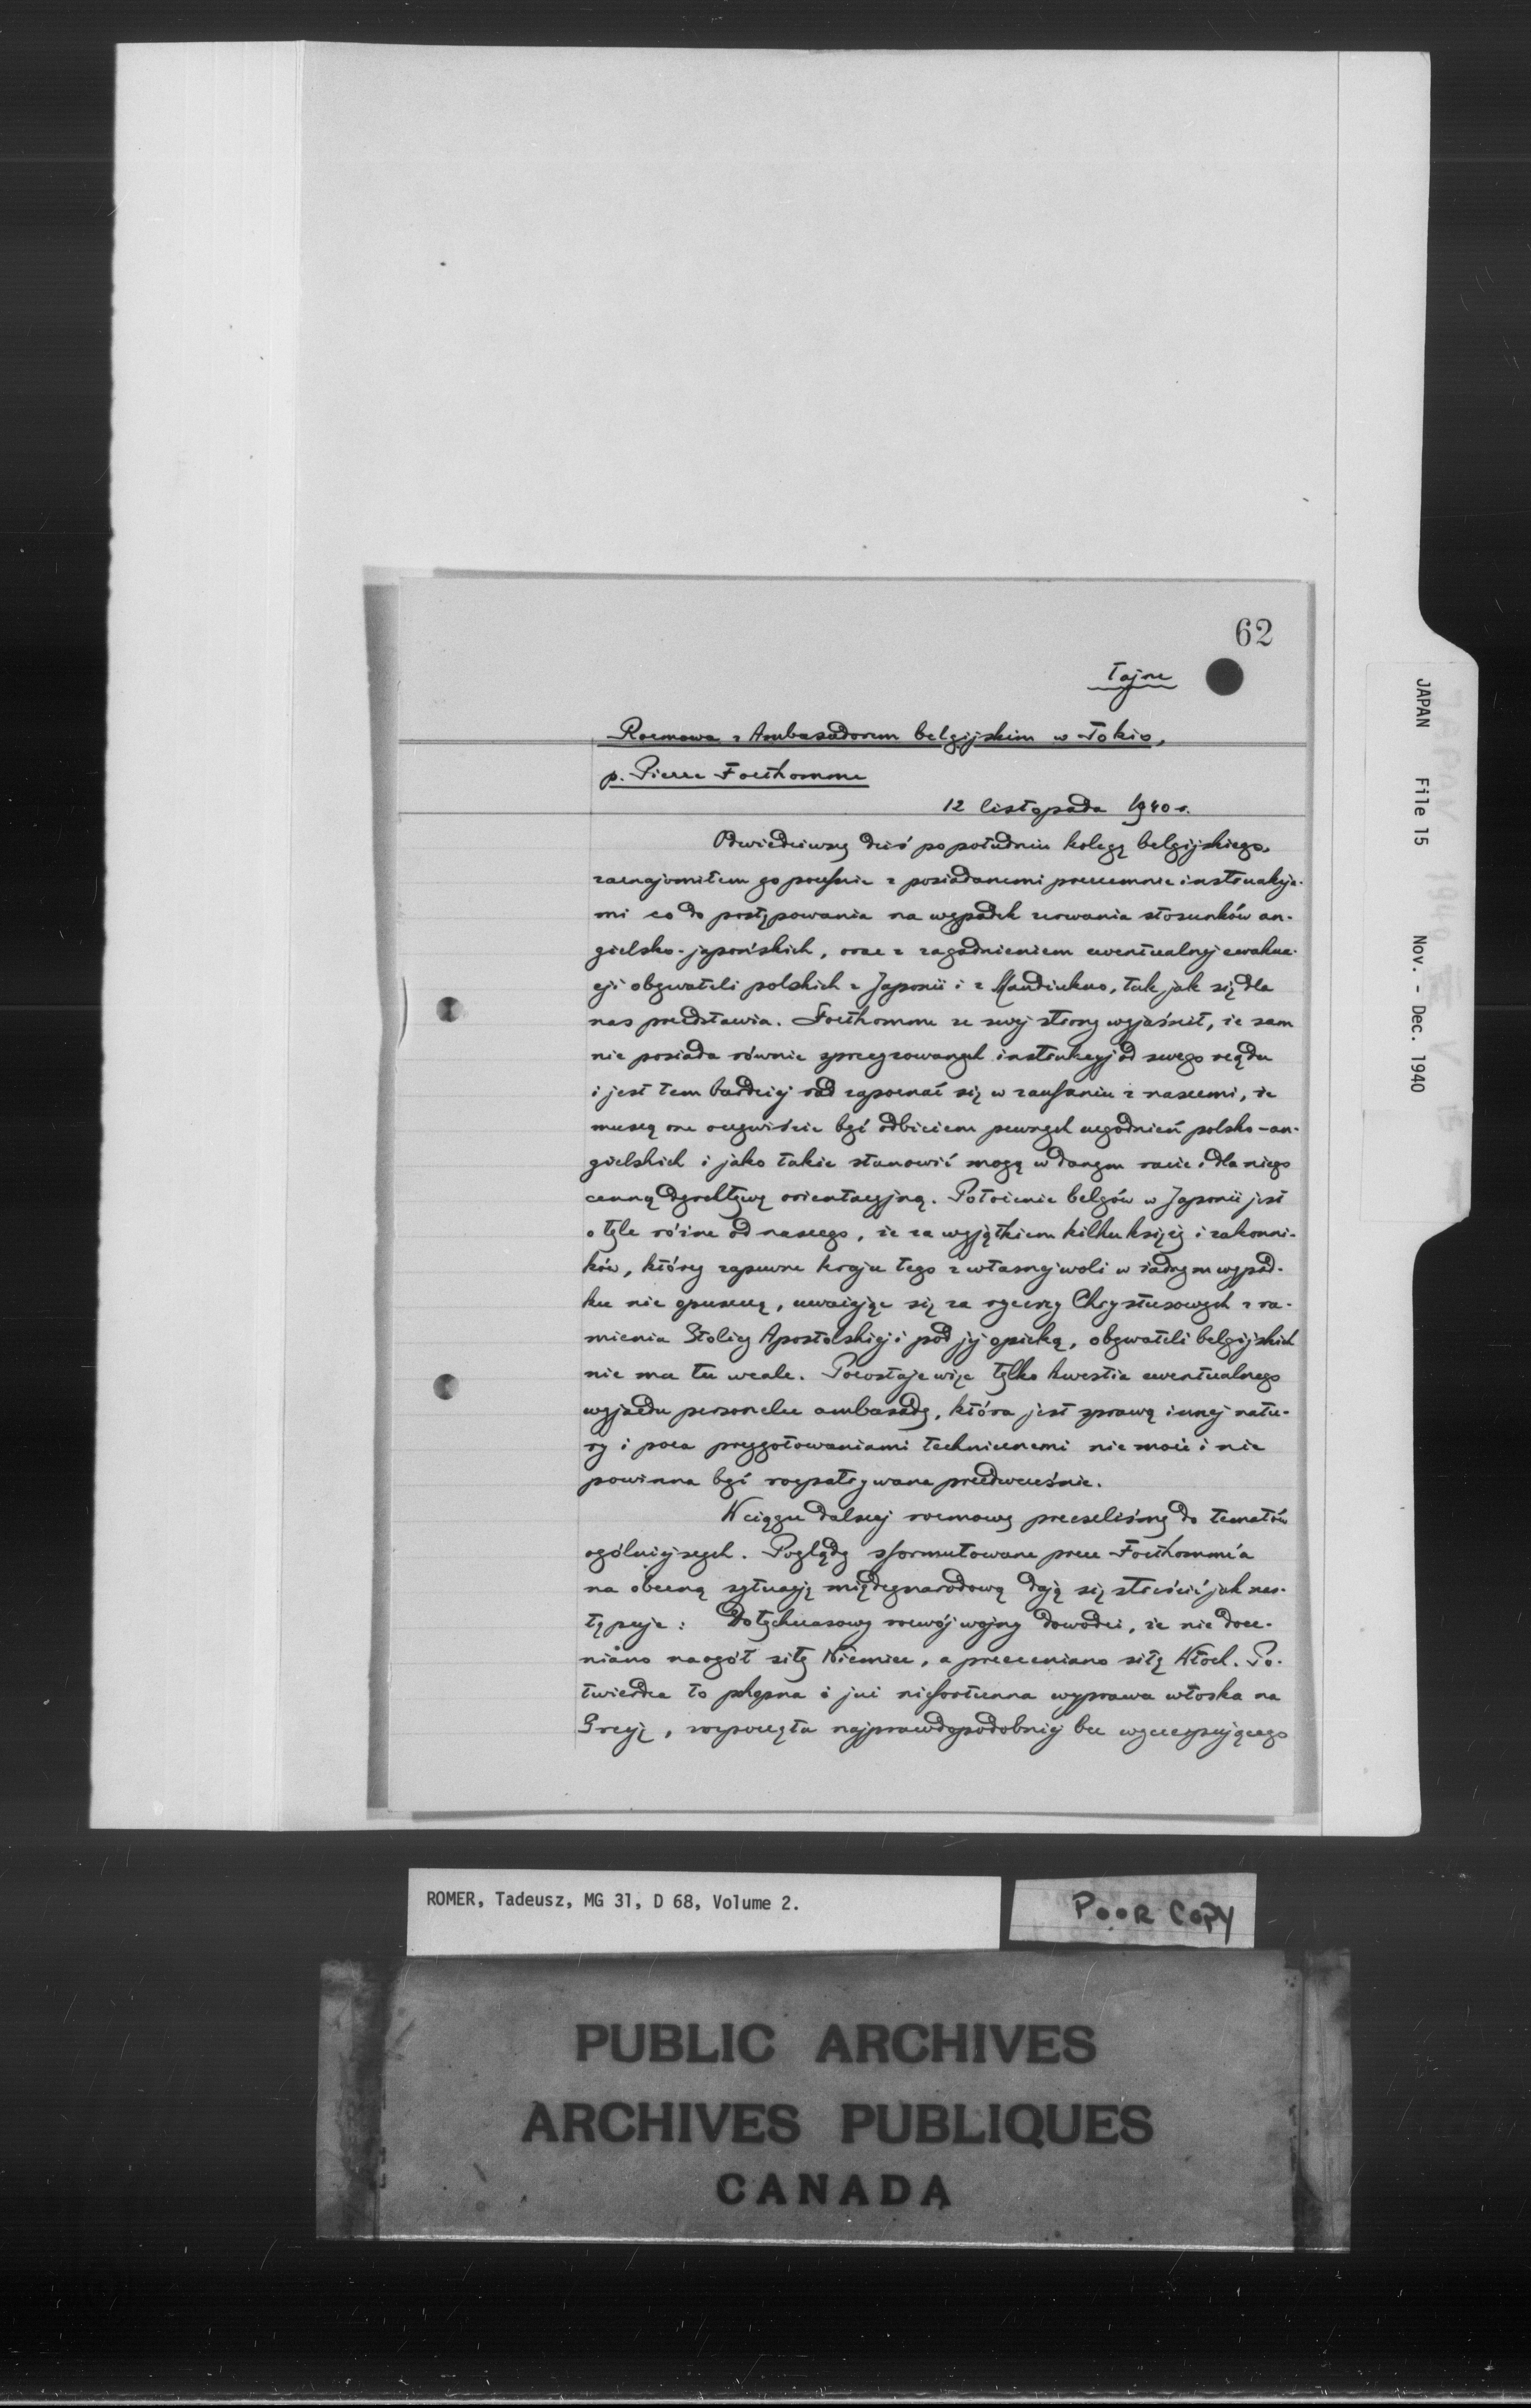 62
Tajne
Rozmowa z Ambasadorem belgijskim w Tokio,
p. Pierre Forthomme
12 listopada 1940 r.
Odwiedziwszy dziś popołudniu kolegę belgijskiego,
zaznajomiłem go poufnie z posiadanemi przezemnie instrukcja-
mi co do postępowania na wypadek zerwania stosunków an-
gielsko-japońskich, oraz z zagadnieniem ewentualnej ewakua-
cji obywateli polskich z Japonii i z Mandżukuo, tak jak się dla
nas przedstawia. Forthomme ze swej strony wyjaśnił, że sam
nie posiada równie sprecyzowanych instrukcyj od swego rządu
i jest tem bardziej rad zapoznać się w zaufaniu z naszemi, że
muszą one oczywiście być odbiciem pewnych uzgodnień polsko-an-
gielskich i jako takie stanowić mogą w danym razie i dla niego
cenną dyrektywę orientacyjną. Położenie belgów w Japonii jest
o tyle różne od naszego, że za wyjątkiem kilku księży i zakonni-
ków, którzy zapewne kraju tego z własnej woli w żadnym wypad-
ku nie opuszczą, uważając się za rycerzy Chrystusowych z ra-
mienia Stolicy Apostolskiej i pod jej opieką, obywateli belgijskich
nie ma tu wcale. Pozostaje więc tylko kwestia ewentualnego
wyjazdu personelu ambasady, która jest sprawą innej natu-
ry i poza przygotowaniami technicznemi nie może i nie
powinna być rozpatrywana przedwcześnie.
W ciągu dalszej rozmowy przeszliśmy do tematów
ogólniejszych. Poglądy sformułowane przez Forthomme'a
na obecną sytuację międzynarodową dają się streścić jak nas-
tępuje: Dotychczasowy rozwój wojny dowodzi, że nie doce-
niano naogół siły Niemiec, a przeceniano siłę Włoch. Po-
twierdza to pochopna i już niefortunna wyprawa włoska na
Grecję, rozpoczęta najprawdopodobniej bez wyczerpującego
JAPAN File 15 Nov. - Dec. 1940
ROMER, Tadeusz, MG 31, D 68, Volume 2.
POOR COPY
PUBLIC ARCHIVES
ARCHIVES PUBLIQUES
CANADA